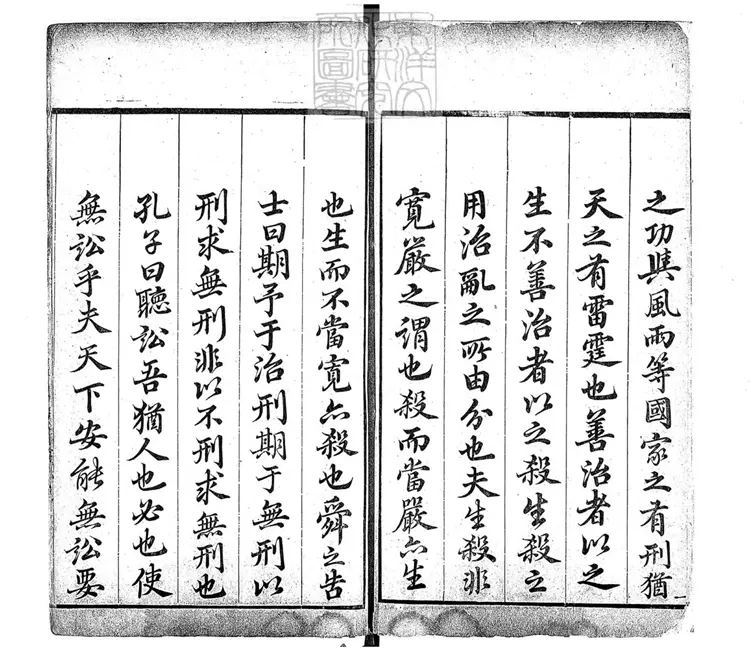 之功與風雨等國家之有刑猶
天之有雷霆也善治者以之
生不善治者以之殺生殺之
用治亂之所由分也夫生殺非
寬嚴之謂也殺而當嚴亦生
也生而不當寬亦殺也舜之告
士曰期予于治刑期于無刑以
刑求無刑非以不刑求無刑也
孔子曰聽訟吾猶人也必也使
無訟乎夫天下安能無訟要